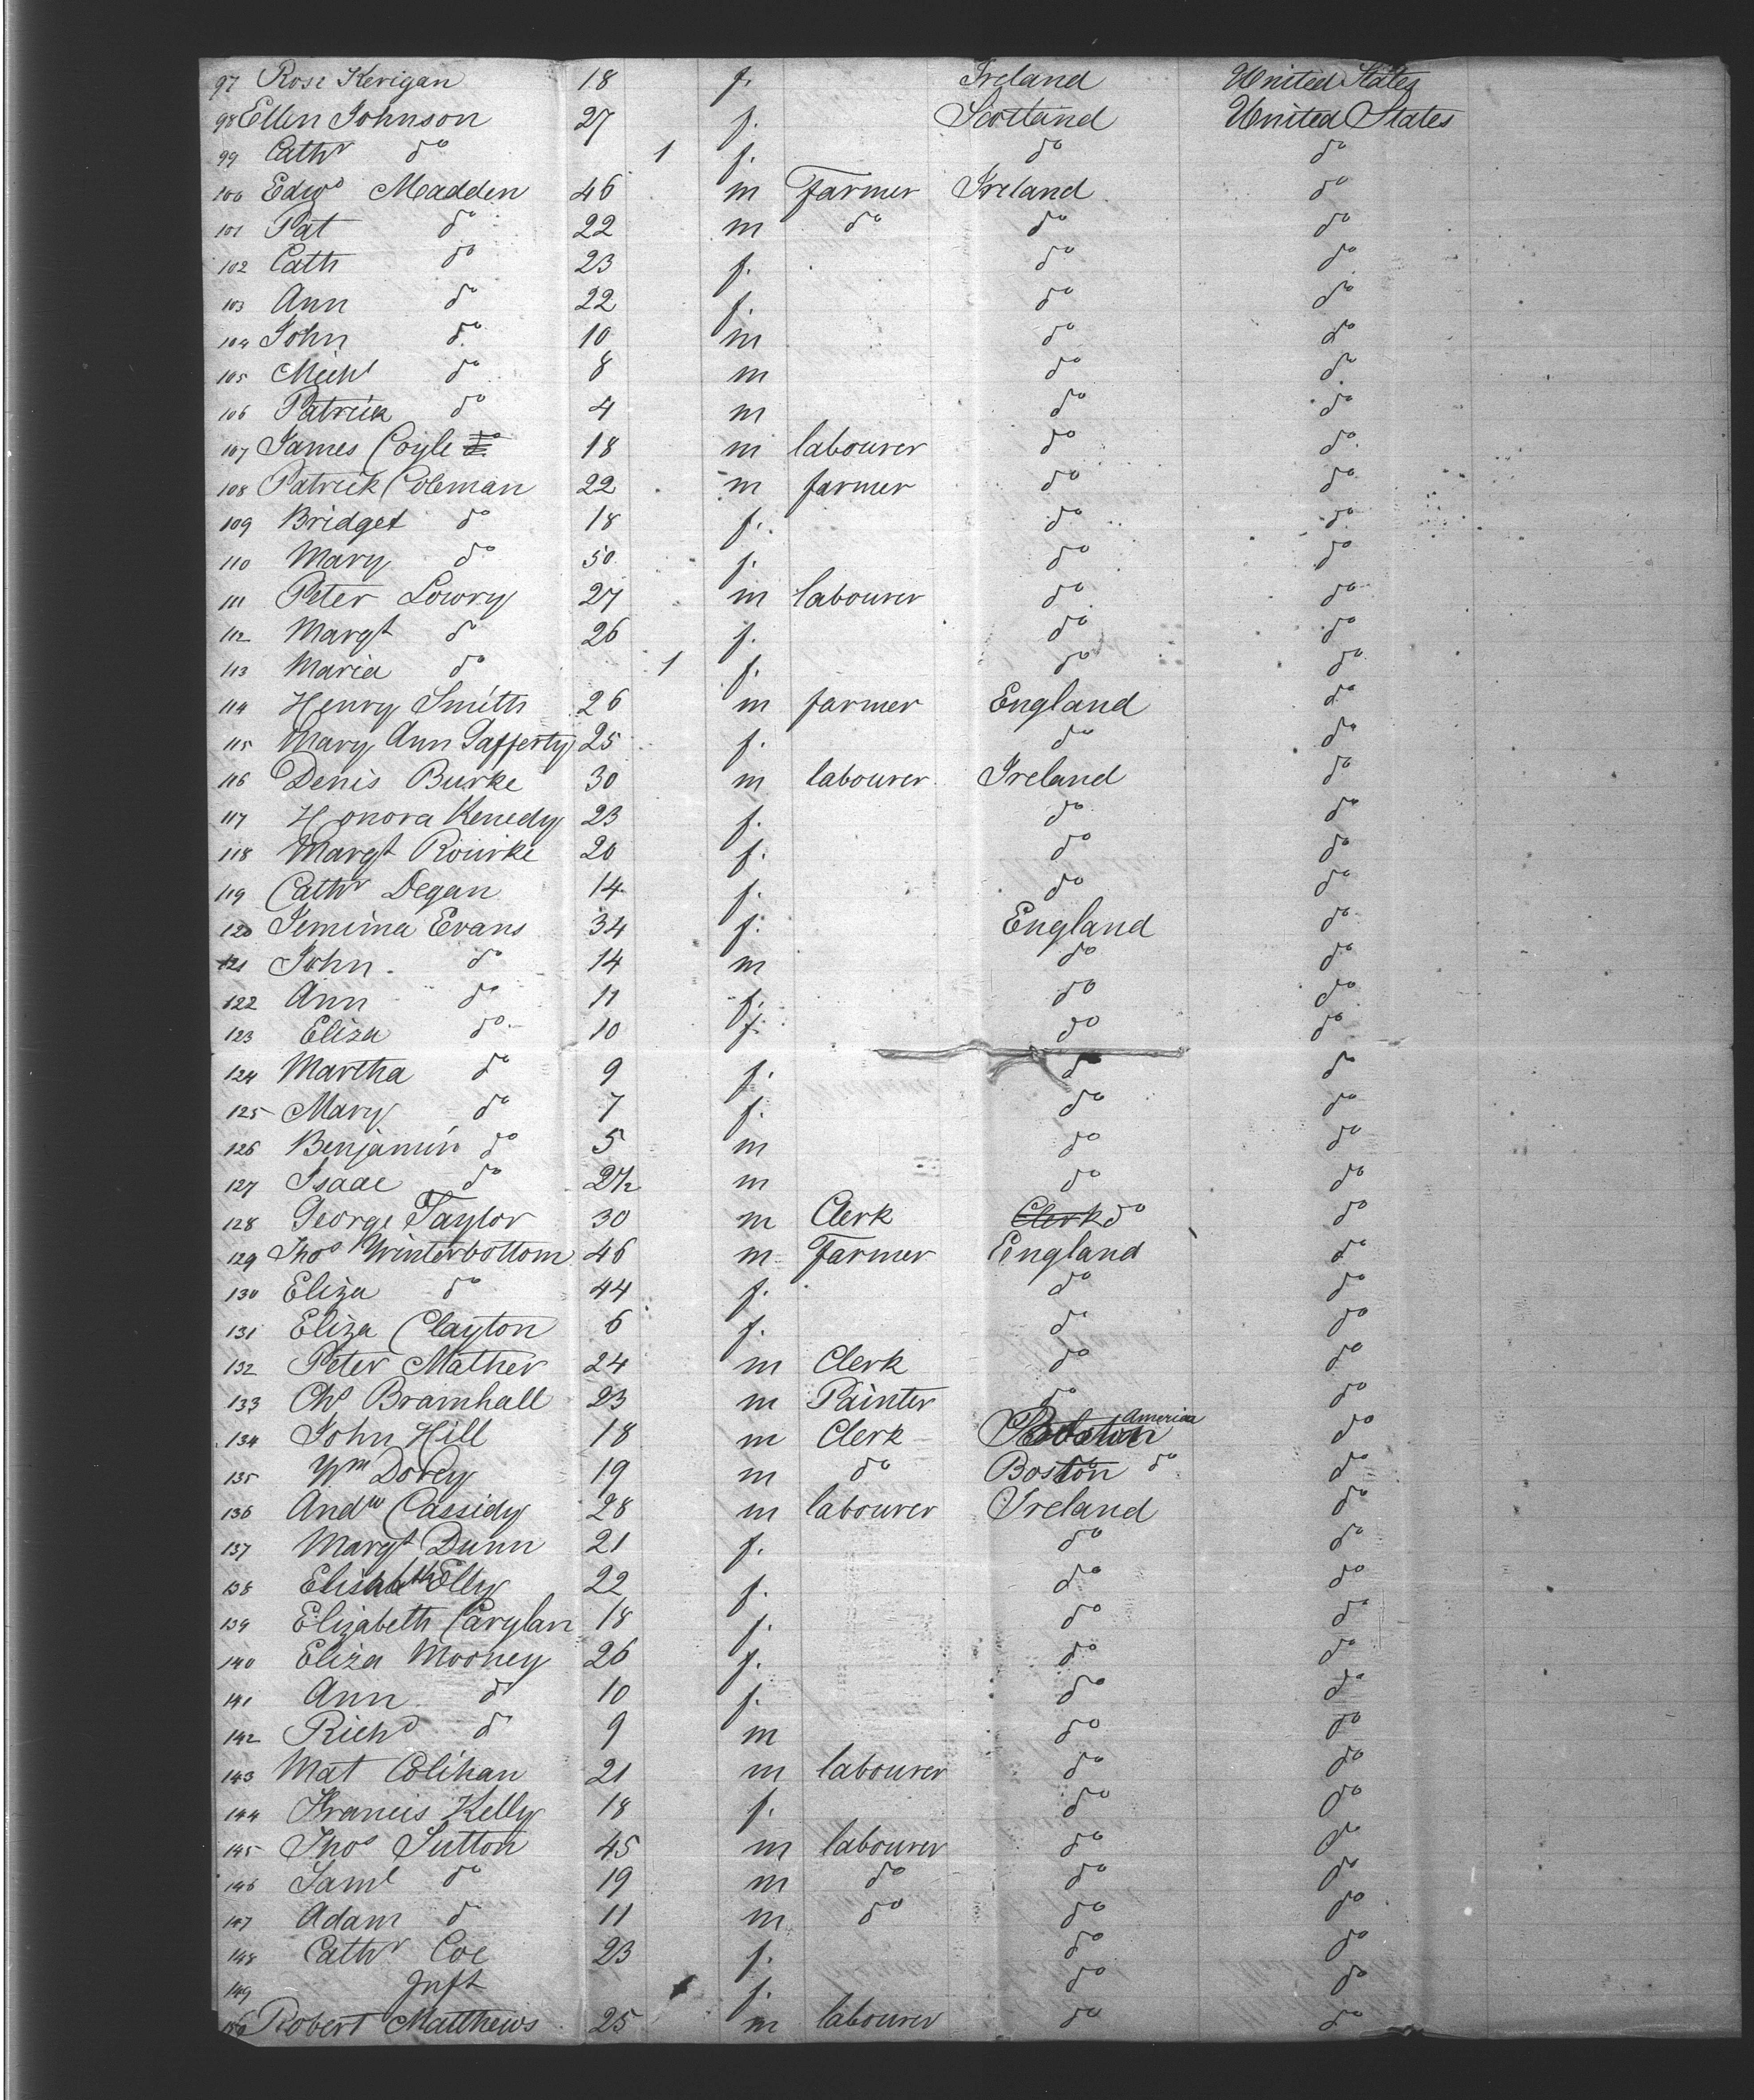 97 Rose Kerigan 18 f. Ireland United States
98 Ellen Johnson 27 f. Scotland United States
99 Cathr do 1 f. do do
100 Edwd Madden 46 m Farmer Ireland do
101 Pat do 22 m do do do
102 Cath do 23 f. do do
103 Ann do 22 f. do do
104 John do 10 m do do
105 Michl do 8 m do do
106 Patrick do 4 m do do
107 James Coyle do 18 m labourer do do
108 Patrick Coleman 22 m farmer do do
109 Bridget do 18 f. do do
110 Mary do 50 f. do do
111 Peter Lowry 27 m labourer do do
112 Margt do 26 f. do do
113 Maria do 1 f. do do
114 Henry Smith 26 m farmer England do
115 Mary Ann Gafferty 25 f. do do
116 Denis Burke 30 m labourer Ireland do
117 Honora Kenedy 23 f. do do
118 Margt Rourke 20 f. do do
119 Cathr Degan 14 f. do do
120 Jemima Evans 34 f. England do
121 John do 14 m do do
122 Ann do 11 f. do do
123 Eliza do 10 f. do do
124 Martha do 9 f. do do
125 Mary do 7 f. do do
126 Benjamin do 5 m do do
127 Isaac do 2 1/2 m do do
128 George Taylor 30 m Clerk Clerk do do
129 Thos Winterbottom 46 m Farmer England do
130 Eliza do 44 f. do do
131 Eliza Clayton 6 f. do do
132 Peter Mather 24 m Clerk do do
133 Chs Bramhall 23 m Painter do do
134 John Hill 18 m Clerk America do
135 Wm 19 m do Boston do do
136 Andw Cassidy 28 m labourer Ireland do
137 Margt Dunn 21 f. do do
138 Elisabeth Elly 22 f. do do
139 Elizabeth 18 f. do do
140 Eliza Mooney 26 f. do do
141 Ann do 10 f. do do
142 Richd do 9 m do do
143 Mat Colihan 21 m labourer do do
144 Francis Kelly 18 f. do do
145 Thos Sutton 45 m labourer do do
146 Saml do 19 m do do do
147 Adam do 11 m do do do
148 Cathr Coe 23 f. do do
149 Inft f. do do
150 Robert Matthews 25 m labourer do do